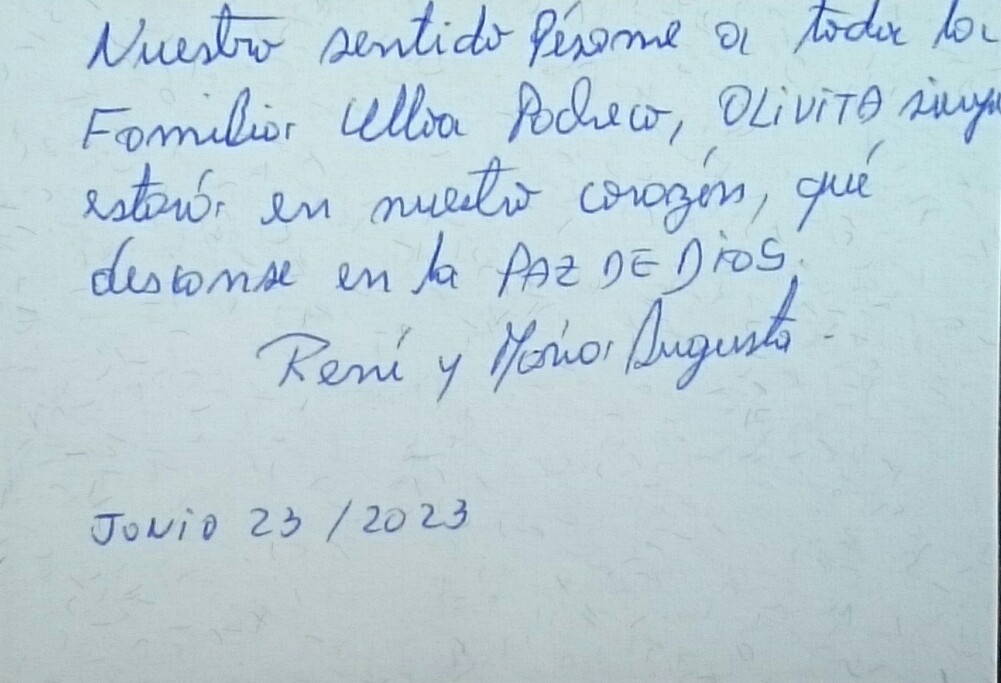 Nuestro sentido Pésame a toda la
Familia Ulloa Pacheco, OLIVITA siemp
estará en nuestro corazón, qué
descanse en la PAZ DE DIOS.
René y María Augusta.
JUNIO 23 / 2023